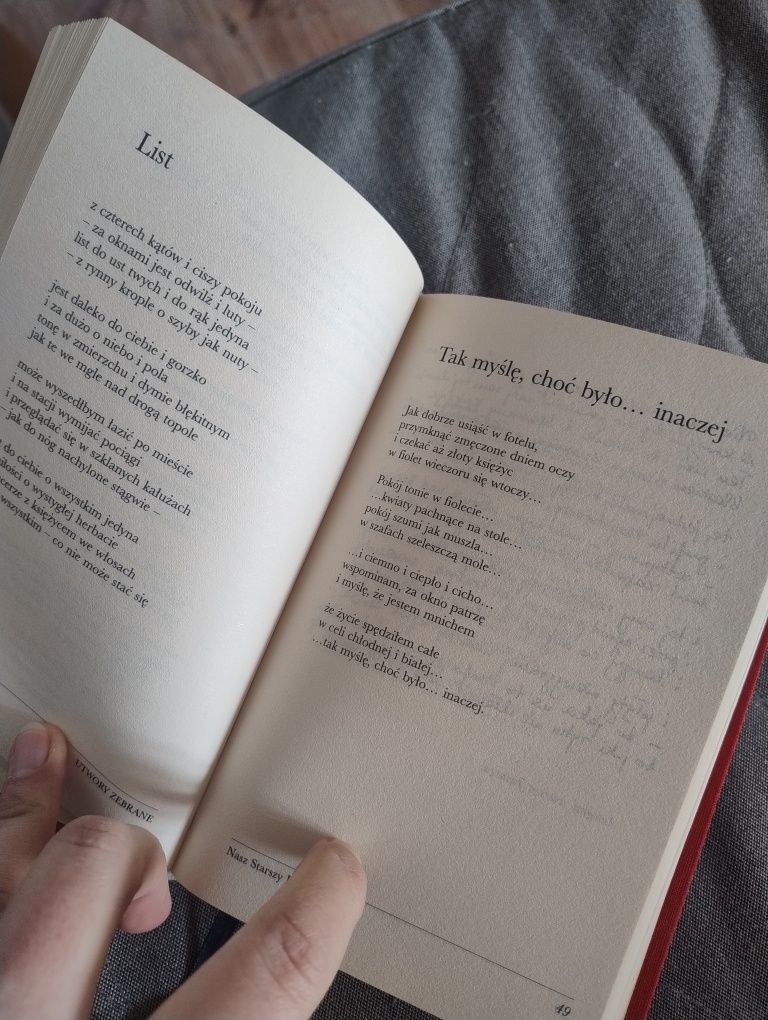 List
z czterech kątów i ciszy pokoju
– za oknami jest odwilż i luty –
list do ust twych i do rąk jedyna
– z rynny krople o szyby jak nuty –
jest daleko do ciebie i gorzko
i za dużo o niebo i pola
tonę w zmierzchu i dymie błękitnym
jak te we mgle nad drogą topole
może wyszedłbym łazić po mieście
i na stacji wymijać pociągi
i przeglądać się w szklanych kałużach
– jak do nóg nachylone stągwie –
do ciebie o wszystkim jedyna
o wystygłej herbacie
z księżycem we włosach
wszystkim – co nie może stać się
UTWORY ZEBRANE
Tak myślę, choć było… inaczej
Jak dobrze usiąść w fotelu,
przymknąć zmęczone dniem oczy
i czekać aż złoty księżyc
w fiolet wieczoru się wtoczy…
Pokój tonie w fiolecie…
…kwiaty pachnące na stole…
pokój szumi jak muszla…
w szafach szeleszczą mole…
…i ciemno i ciepło i cicho…
wspominam, za okno patrzę
i myślę, że jestem mnichem
że życie spędziłem całe
w celi chłodnej i białej…
…tak myślę, choć było… inaczej.
Nasz Starszy
49